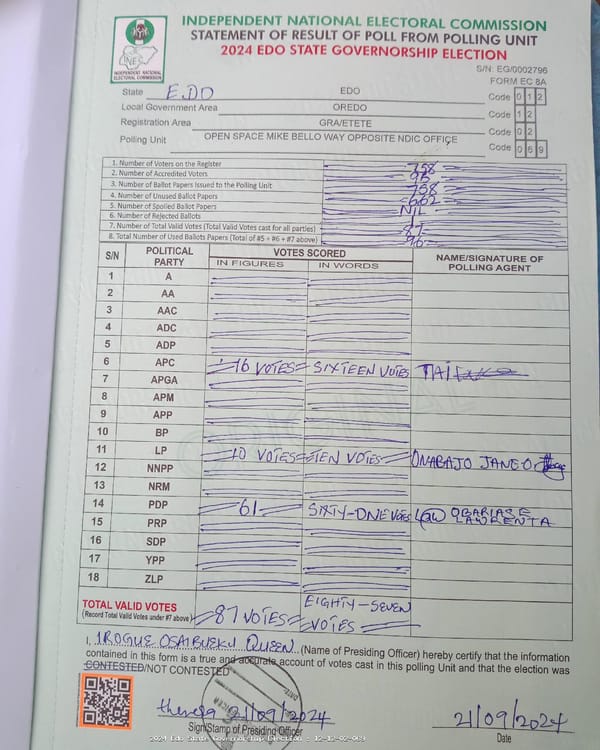 INDEPENDENT NATIONAL ELECTORAL COMMISSION
STATEMENT OF RESULT OF POLL FROM POLLING UNIT
2024 EDO STATE GOVERNORSHIP ELECTION
INDEPENDENT NATIONAL ELECTORAL COMMISSION
S/N: EG/0002796
FORM EC 8A
State EDO EDO Code 0 1 2
Local Government Area OREDO Code 1 2
Registration Area GRA/ETETE Code 0 2
Polling Unit OPEN SPACE MIKE BELLO WAY OPPOSITE NDIC OFFICE Code 0 6 9
1. Number of Voters on the Register 758
2. Number of Accredited Voters
3. Number of Ballot Papers Issued to the Polling Unit 758
4. Number of Unused Ballot Papers 662
5. Number of Spoiled Ballot Papers NIL
6. Number of Rejected Ballots
7. Number of Total Valid Votes (Total Valid Votes cast for all parties) 87
8. Total Number of Used Ballots Papers (Total of #5 + #6 + #7 above)
S/N POLITICAL PARTY VOTES SCORED NAME/SIGNATURE OF POLLING AGENT
IN FIGURES IN WORDS
1 A
2 AA
3 AAC
4 ADC
5 ADP
6 APC 16 VOTES SIXTEEN VOTES
7 APGA
8 APM
9 APP
10 BP
11 LP 10 VOTES TEN VOTES ONABAJO JANE O
12 NNPP
13 NRM
14 PDP 61 SIXTY-ONE VOTES
15 PRP
16 SDP
17 YPP
18 ZLP
TOTAL VALID VOTES
(Record Total Valid Votes under #7 above) 87 VOTES EIGHTY-SEVEN VOTES
I, IROGUE OSAIBUEKU QUEEN (Name of Presiding Officer) hereby certify that the information
contained in this form is a true and accurate account of votes cast in this polling Unit and that the election was
CONTESTED/NOT CONTESTED
theresa 21/09/2024 21/09/2024
Sign/Stamp of Presiding Officer Date